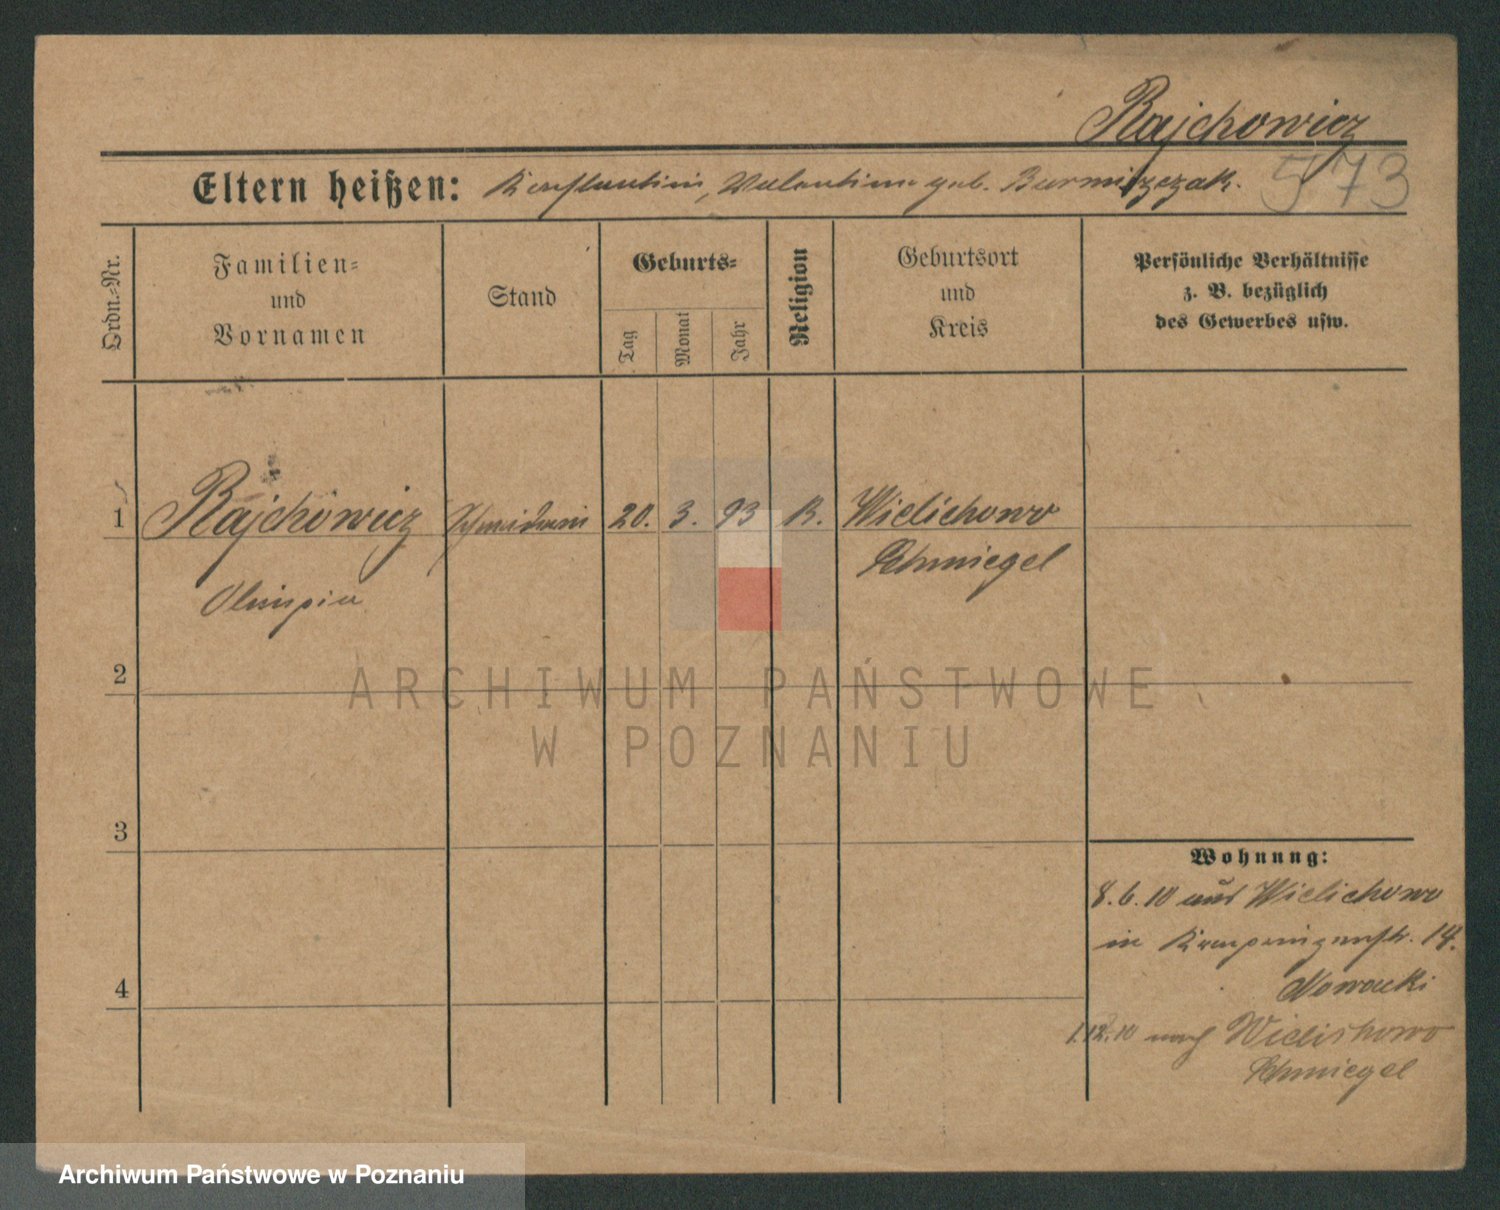 Rajchowicz
573
Eltern heißen: Konstantin, Valentine geb. Burmiszczak.
Ordn.=Nr.
Familien=
und
Vornamen
Stand
Geburts=
Tag
Monat
Jahr
Religion
Geburtsort
und
Kreis
Persönliche Verhältnisse
z. B. bezüglich
des Gewerbes usw.
1 Rajchowicz Schneiderin 20. 3. 93 K. Wielichowo
Schmiegel
Olimpia
2
ARCHIWUM PAŃSTWOWE
W POZNANIU
3
Wohnung:
8.6.10 aus Wielichowo
in 14.
Nowacki
4
1.12.10 nach Wielichowo
Schmiegel
Archiwum Państwowe w Poznaniu